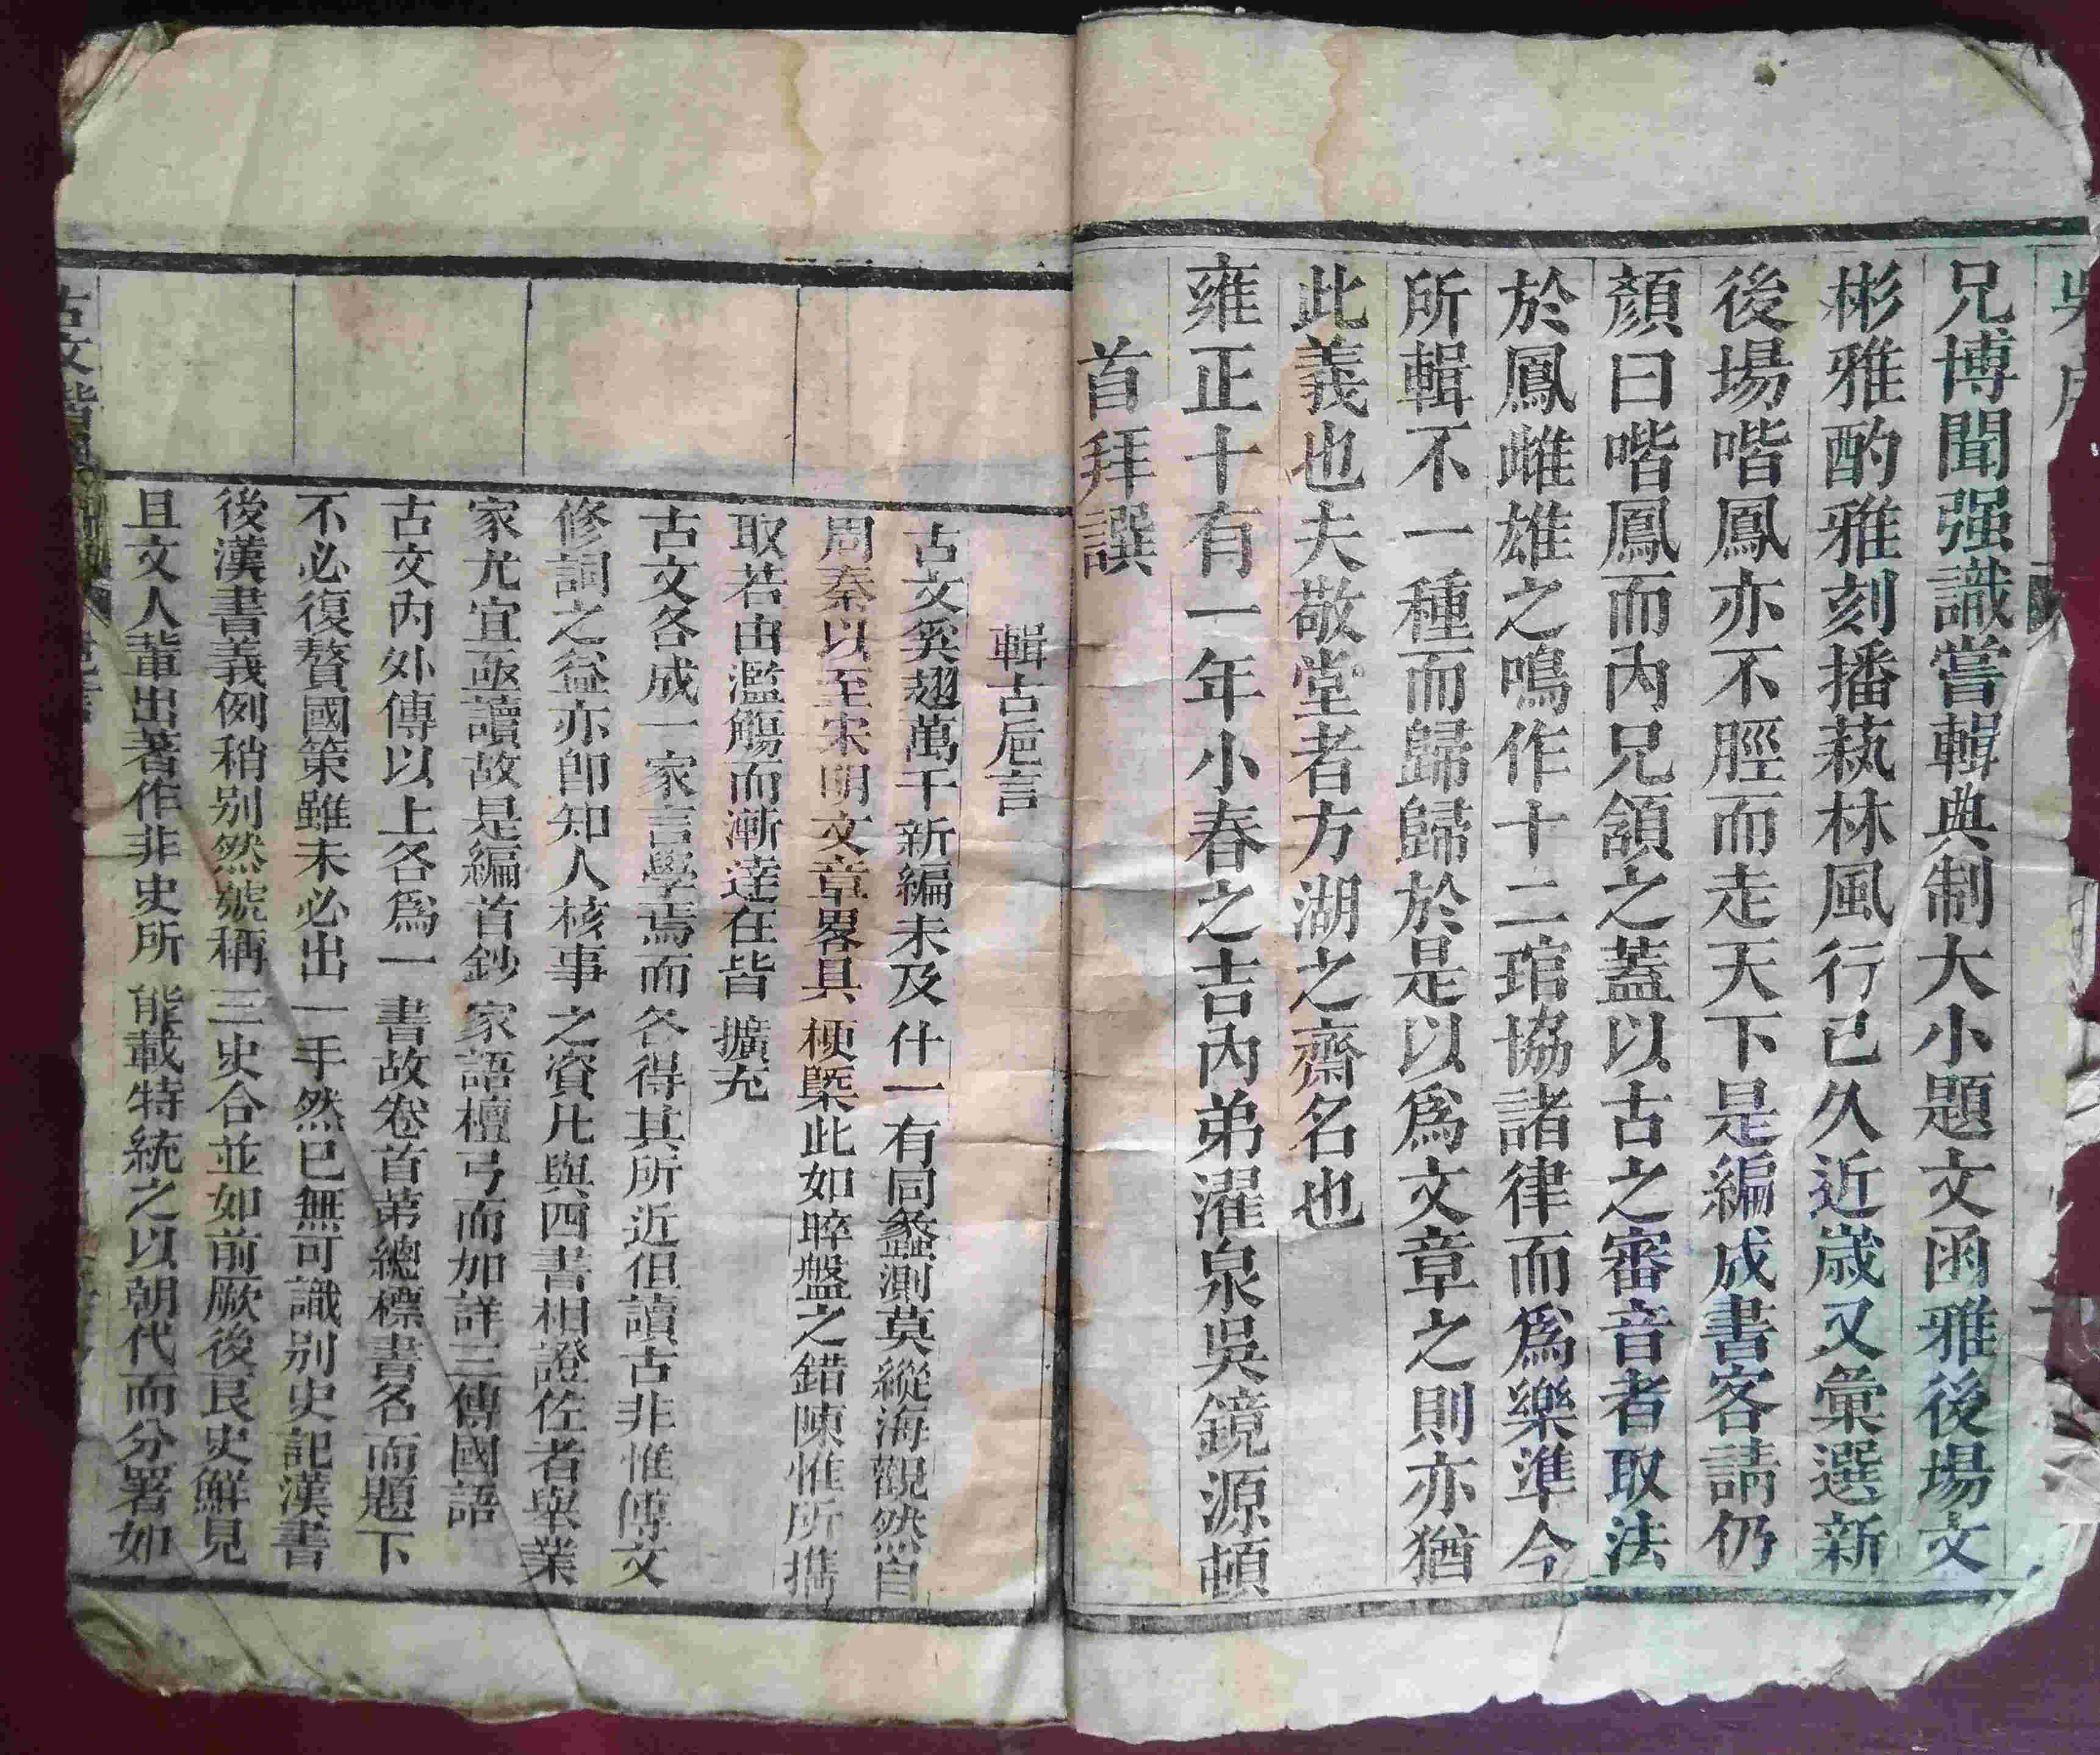 吳序
兄博聞强識嘗輯典制大小題文函雅後場文
彬雅酌雅刻播蓺林風行已久近歲又彙選新
後場喈鳳亦不脛而走天下是編成書客請仍
顏曰喈鳳而內兄頷之蓋以古之審音者取法
於鳳雌雄之鳴作十二琯協諸律而爲樂準今
所輯不一種而歸歸於是以爲文章之則亦猶
此義也夫敬堂者方湖之齋名也
雍正十有一年小春之吉內弟濯泉吳鏡源頓
首拜譔
輯古巵言
古文奚翅萬千新編未及什一有同蠡測莫縱海觀然自
周秦以至宋明文章畧具梗槩此如晬盤之錯陳惟所攜
取若由濫觴而漸達在皆擴充
古文各成一家言學焉而各得其所近但讀古非惟傳文
修詞之益亦卽知人核事之資凡與四書相證佐者舉業
家尤宜亟讀故是編首鈔家語檀弓而加詳三傳國語
古文內外傳以上各爲一書故卷首第總標書名而題下
不必復贅國策雖未必出一手然已無可識别史記漢書
後漢書義例稍别然號稱三史合並如前厥後良史鮮見
且文人輩出著作非史所能載特統之以朝代而分署如
古文喈鳳
巵言